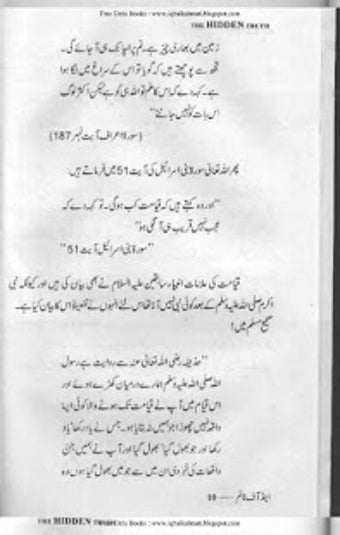 Free Urdu Books : www.iqbalkalmati.blogspot.com
THE HIDDEN TRUTH
زمین میں بھاری چیز ہے۔ تم پر اچانک ہی آ جائے گی۔
تجھ سے پوچھتے ہیں کہ گویا تو اس کے سراغ میں لگا ہوا
ہے۔ کہہ دے کہ اس کا علم تو اللہ ہی کو ہے لیکن اکثر لوگ
اس بات کو نہیں جانتے‘‘
(سورۃ اعراف آیت نمبر 187)
پھر اللہ تعالیٰ سورۃ بنی اسرائیل کی آیت 51 میں فرماتے ہیں
’’اور وہ کہتے ہیں کہ قیامت کب ہو گی۔ تو کہہ دے کہ
عجب نہیں قریب ہی آ لگی ہو‘‘
’’سورۃ بنی اسرائیل آیت 51‘‘
قیامت کی علامات انبیاء سابقین علیہ السلام نے بھی بیان کی ہیں اور کیونکہ نبی
اکرم صلی اللہ علیہ وسلم کے بعد کوئی نبی نہیں آنا تھا اس لئے انہوں نے تفصیلاً اس کا بیان کیا ہے۔
صحیح مسلم میں!
’’حذیفہ رضی اللہ تعالیٰ عنہ سے روایت ہے رسول
اللہ صلی اللہ علیہ وسلم ہمارے درمیان کھڑے ہوئے اور
اس قیام میں آپ نے قیامت تک ہونے والا کوئی ایسا
واقعہ نہیں چھوڑا جو ہمیں نہ بتایا ہو۔ جس نے یاد رکھا یاد
رکھا اور جو بھول گیا بھول گیا اور آپ نے ہمیں جن
واقعات کی خبر دی ان میں سے جو میں بھول گیا ہوں وہ
اینڈ آف ٹائم —— 10
THE HIDDEN TRUTH
Free Urdu Books : www.iqbalkalmati.blogspot.com